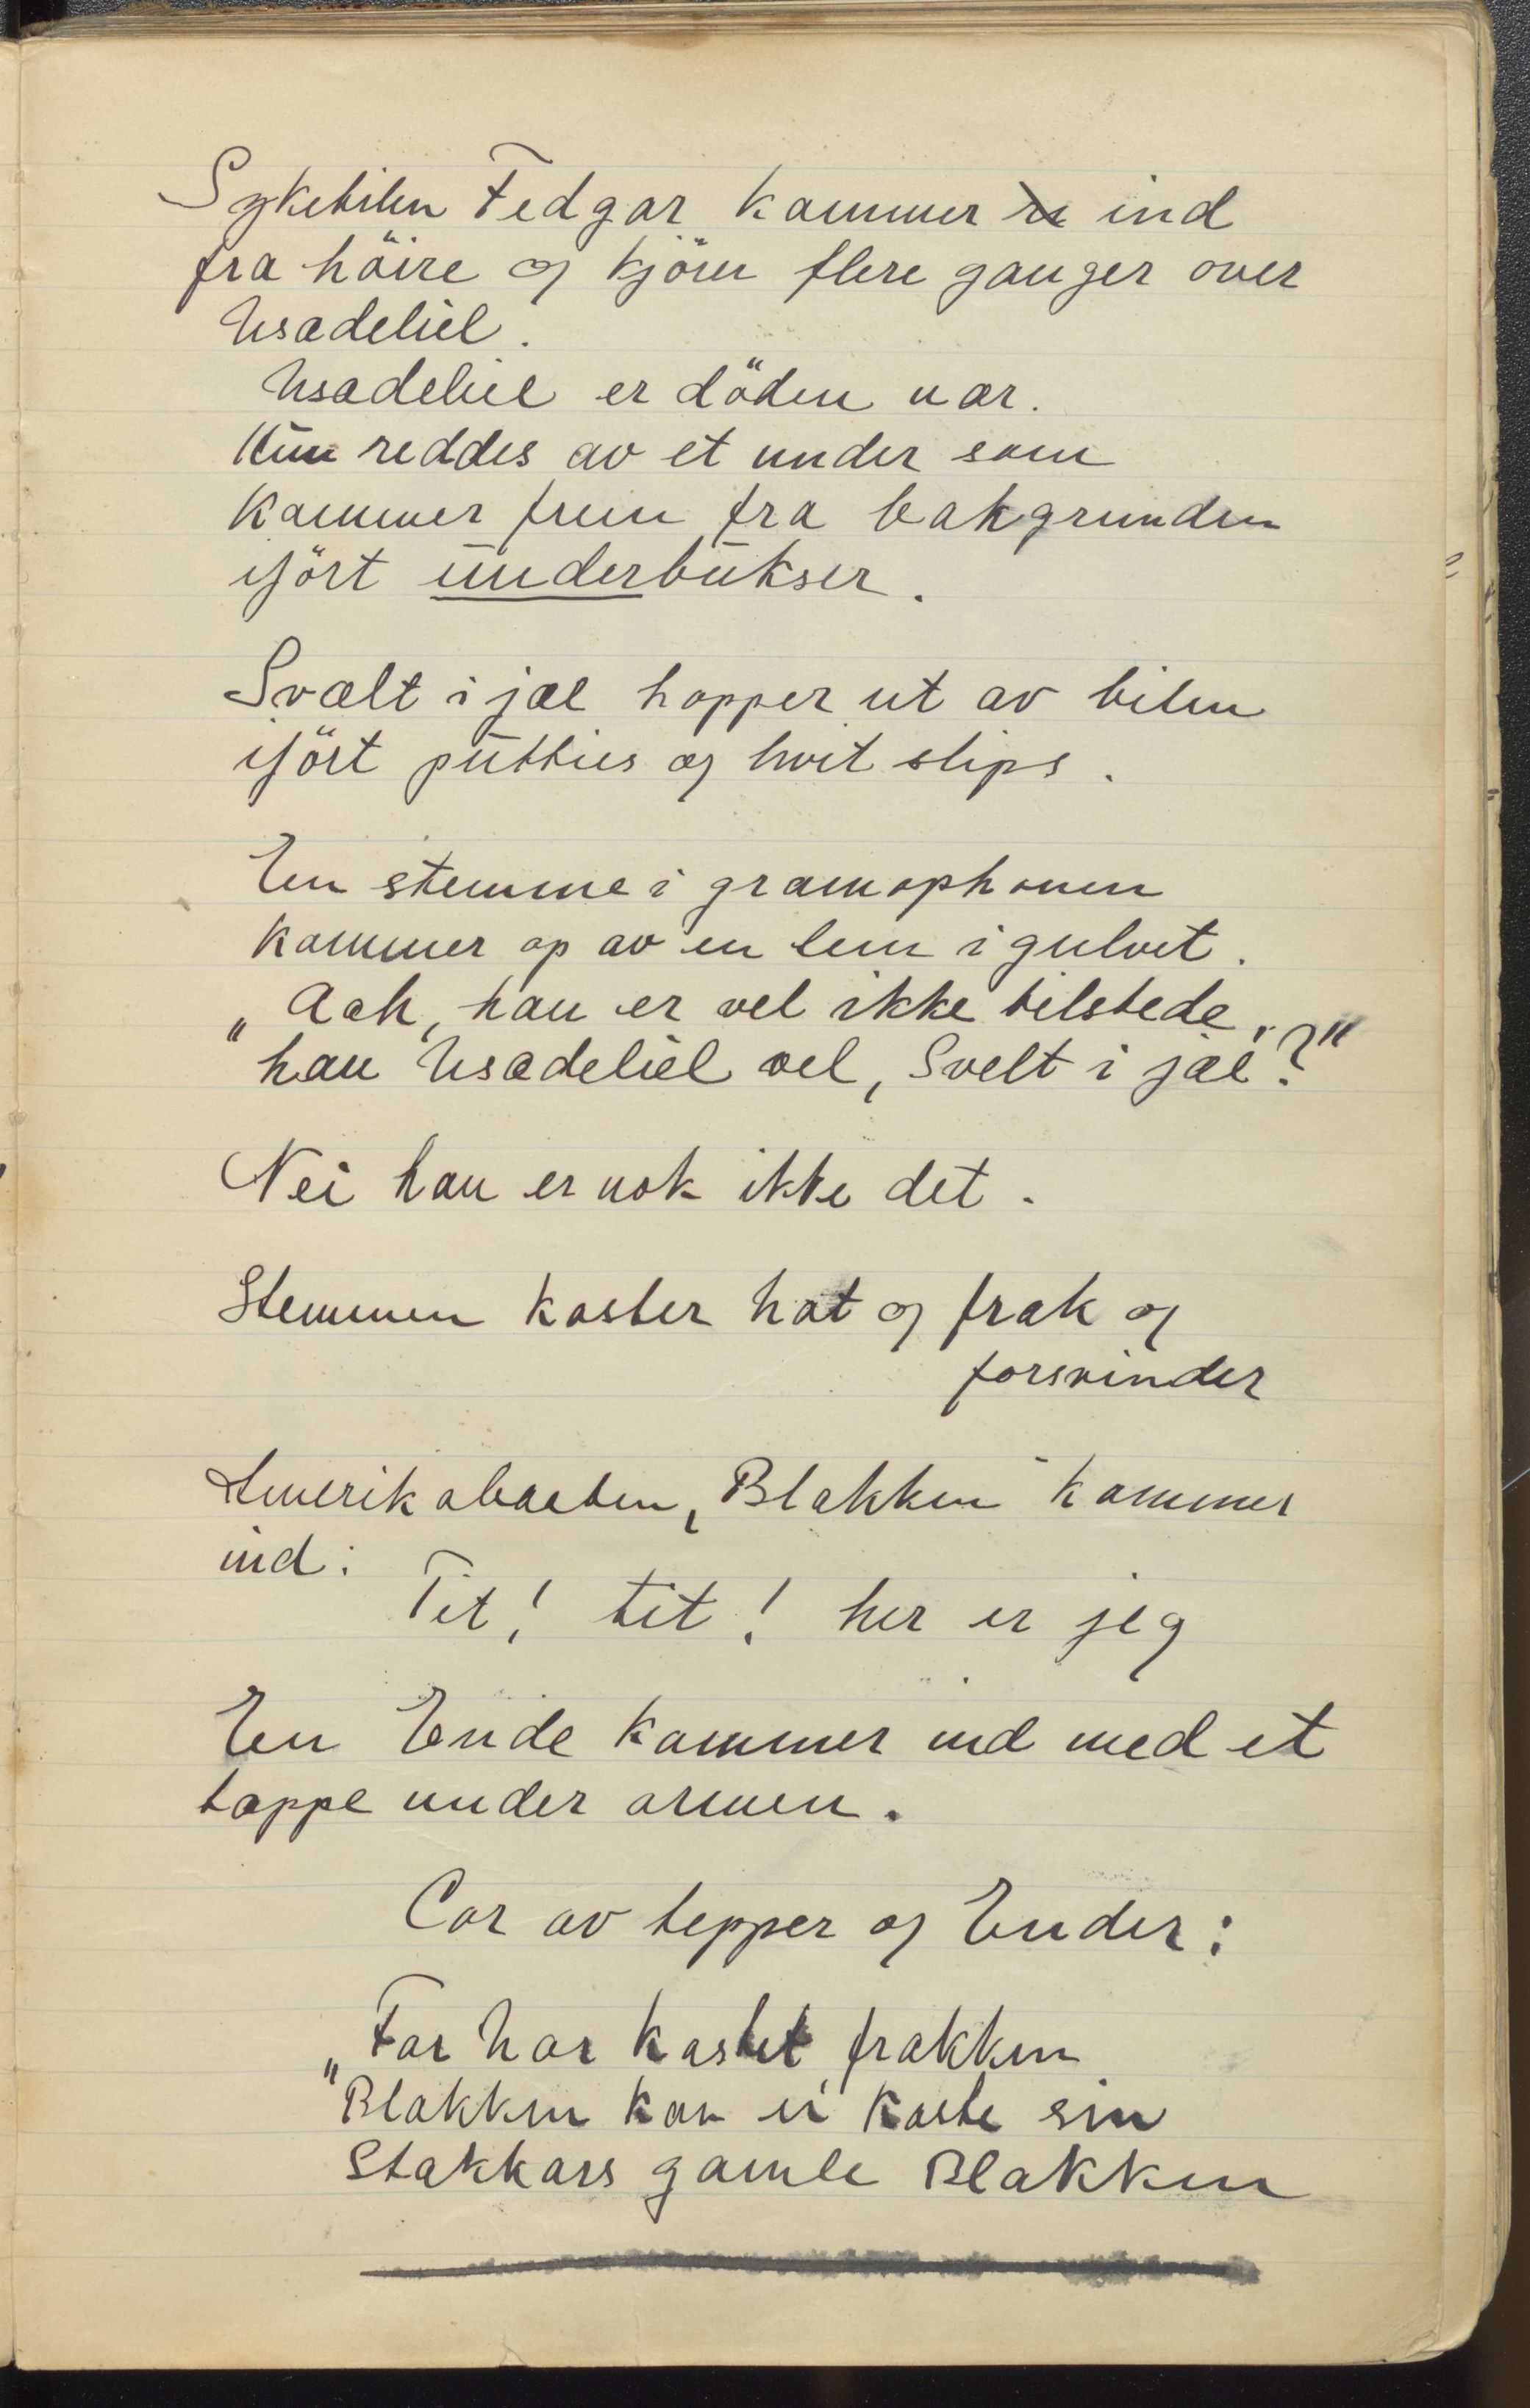 Sykebilen Fedgar kommer ind
fra höire og kjörer flere ganger over
Usædeliel.
Usædeliel er döden nær.
Hun reddes av et under som
kommer frem fra bakgrunden
ifört ūnderbūkser.
Svælt i jæl hopper ut av bilen
ifört pūtties og hvit slips.
En stemme i gramophonen
kommer op av en lem i gulvet.
„Aah, han er vel ikke tilstede,
han Usædeliel vel, Svelt i jæl?"
Nei han er nok ikke det.
Stemmen kaster hat og frak og
forsvinder
Amerikabaaten „Blakken" kommer
ind:
Tit! tit! her er jeg
En Ende kommer ind med et
tæppe under armen.
Cor av tepper og Ender:
„Far har kastet frakken
Blakken kan ei kaste sin
Stakkars gamle Blakken